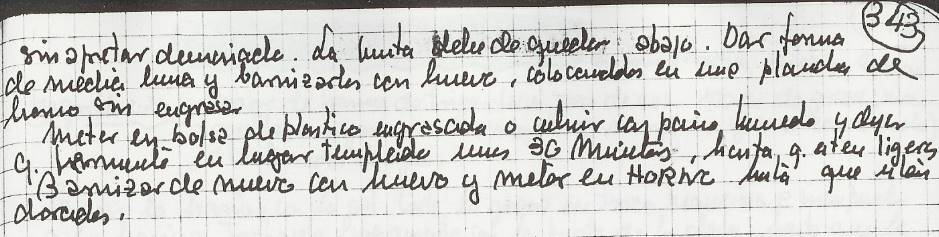 343
sin apretar demasiado. La punta debe de quedar abajo. Dar forma
de media luna y barnizarlos con huevo, colocandolos en una plancha de
horno sin engrasar
Meter en bolsa de plastico engrasada o cubrir con paño humedo y dejar
q. fermente en lugar templado unos 30 Minutos, hasta q. esten ligeros
Barnizar de nuevo con huevo y meter en HORNO hasta que esten
dorados.